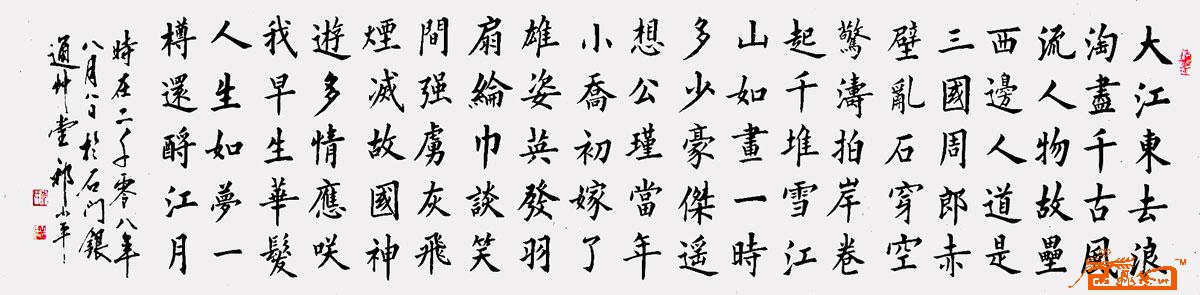 大江東去浪
淘盡千古風
流人物故壘
西邊人道是
三國周郎赤
壁亂石穿空
驚濤拍岸卷
起千堆雪江
山如畫一時
多少豪傑遥
想公瑾當年
小喬初嫁了
雄姿英發羽
扇綸巾談笑
間强虜灰飛
煙滅故國神
遊多情應咲
我早生華髮
人生如夢一
樽還酹江月
時在二千零八年
八月八日於石門銀
通堂祁小平